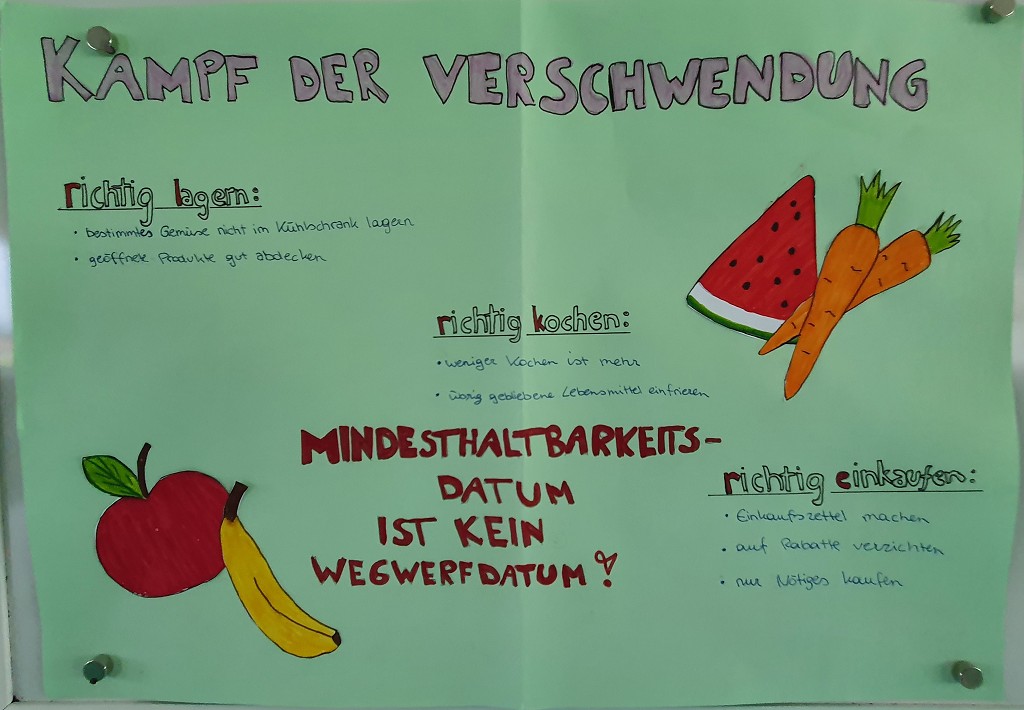 KAMPF DER VERSCHWENDUNG
richtig lagern:
• bestimmtes Gemüse nicht im Kühlschrank lagern
• geöffnete Produkte gut abdecken
richtig kochen:
• weniger Kochen ist mehr
• übrig gebliebene Lebensmittel einfrieren
MINDESTHALTBARKEITS-
DATUM
IST KEIN
WEGWERFDATUM!
richtig einkaufen:
• Einkaufszettel machen
• auf Rabatte verzichten
• nur Nötiges kaufen